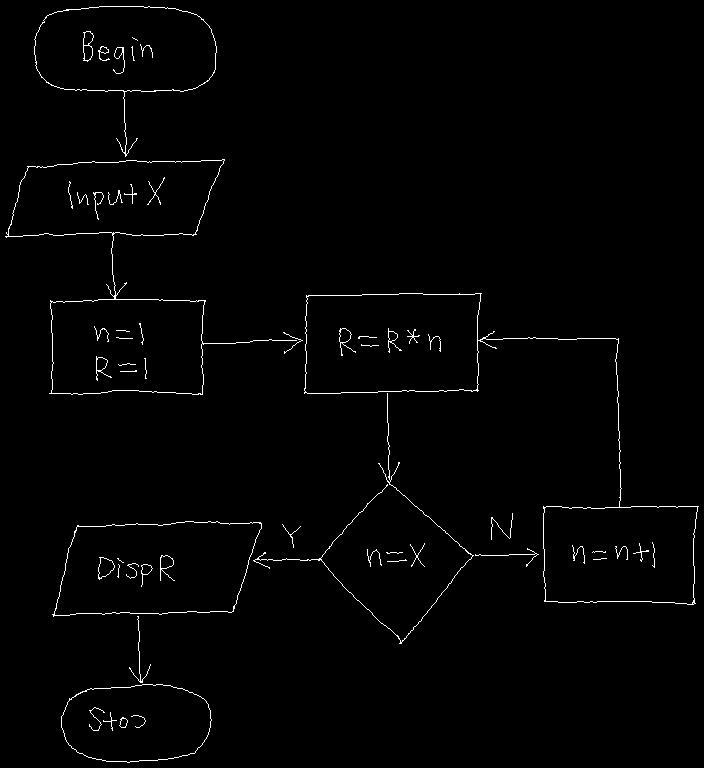 Begin
Input X
n=1
R=1
R=R*n
n=X
Y
N
n=n+1
DispR
Stop